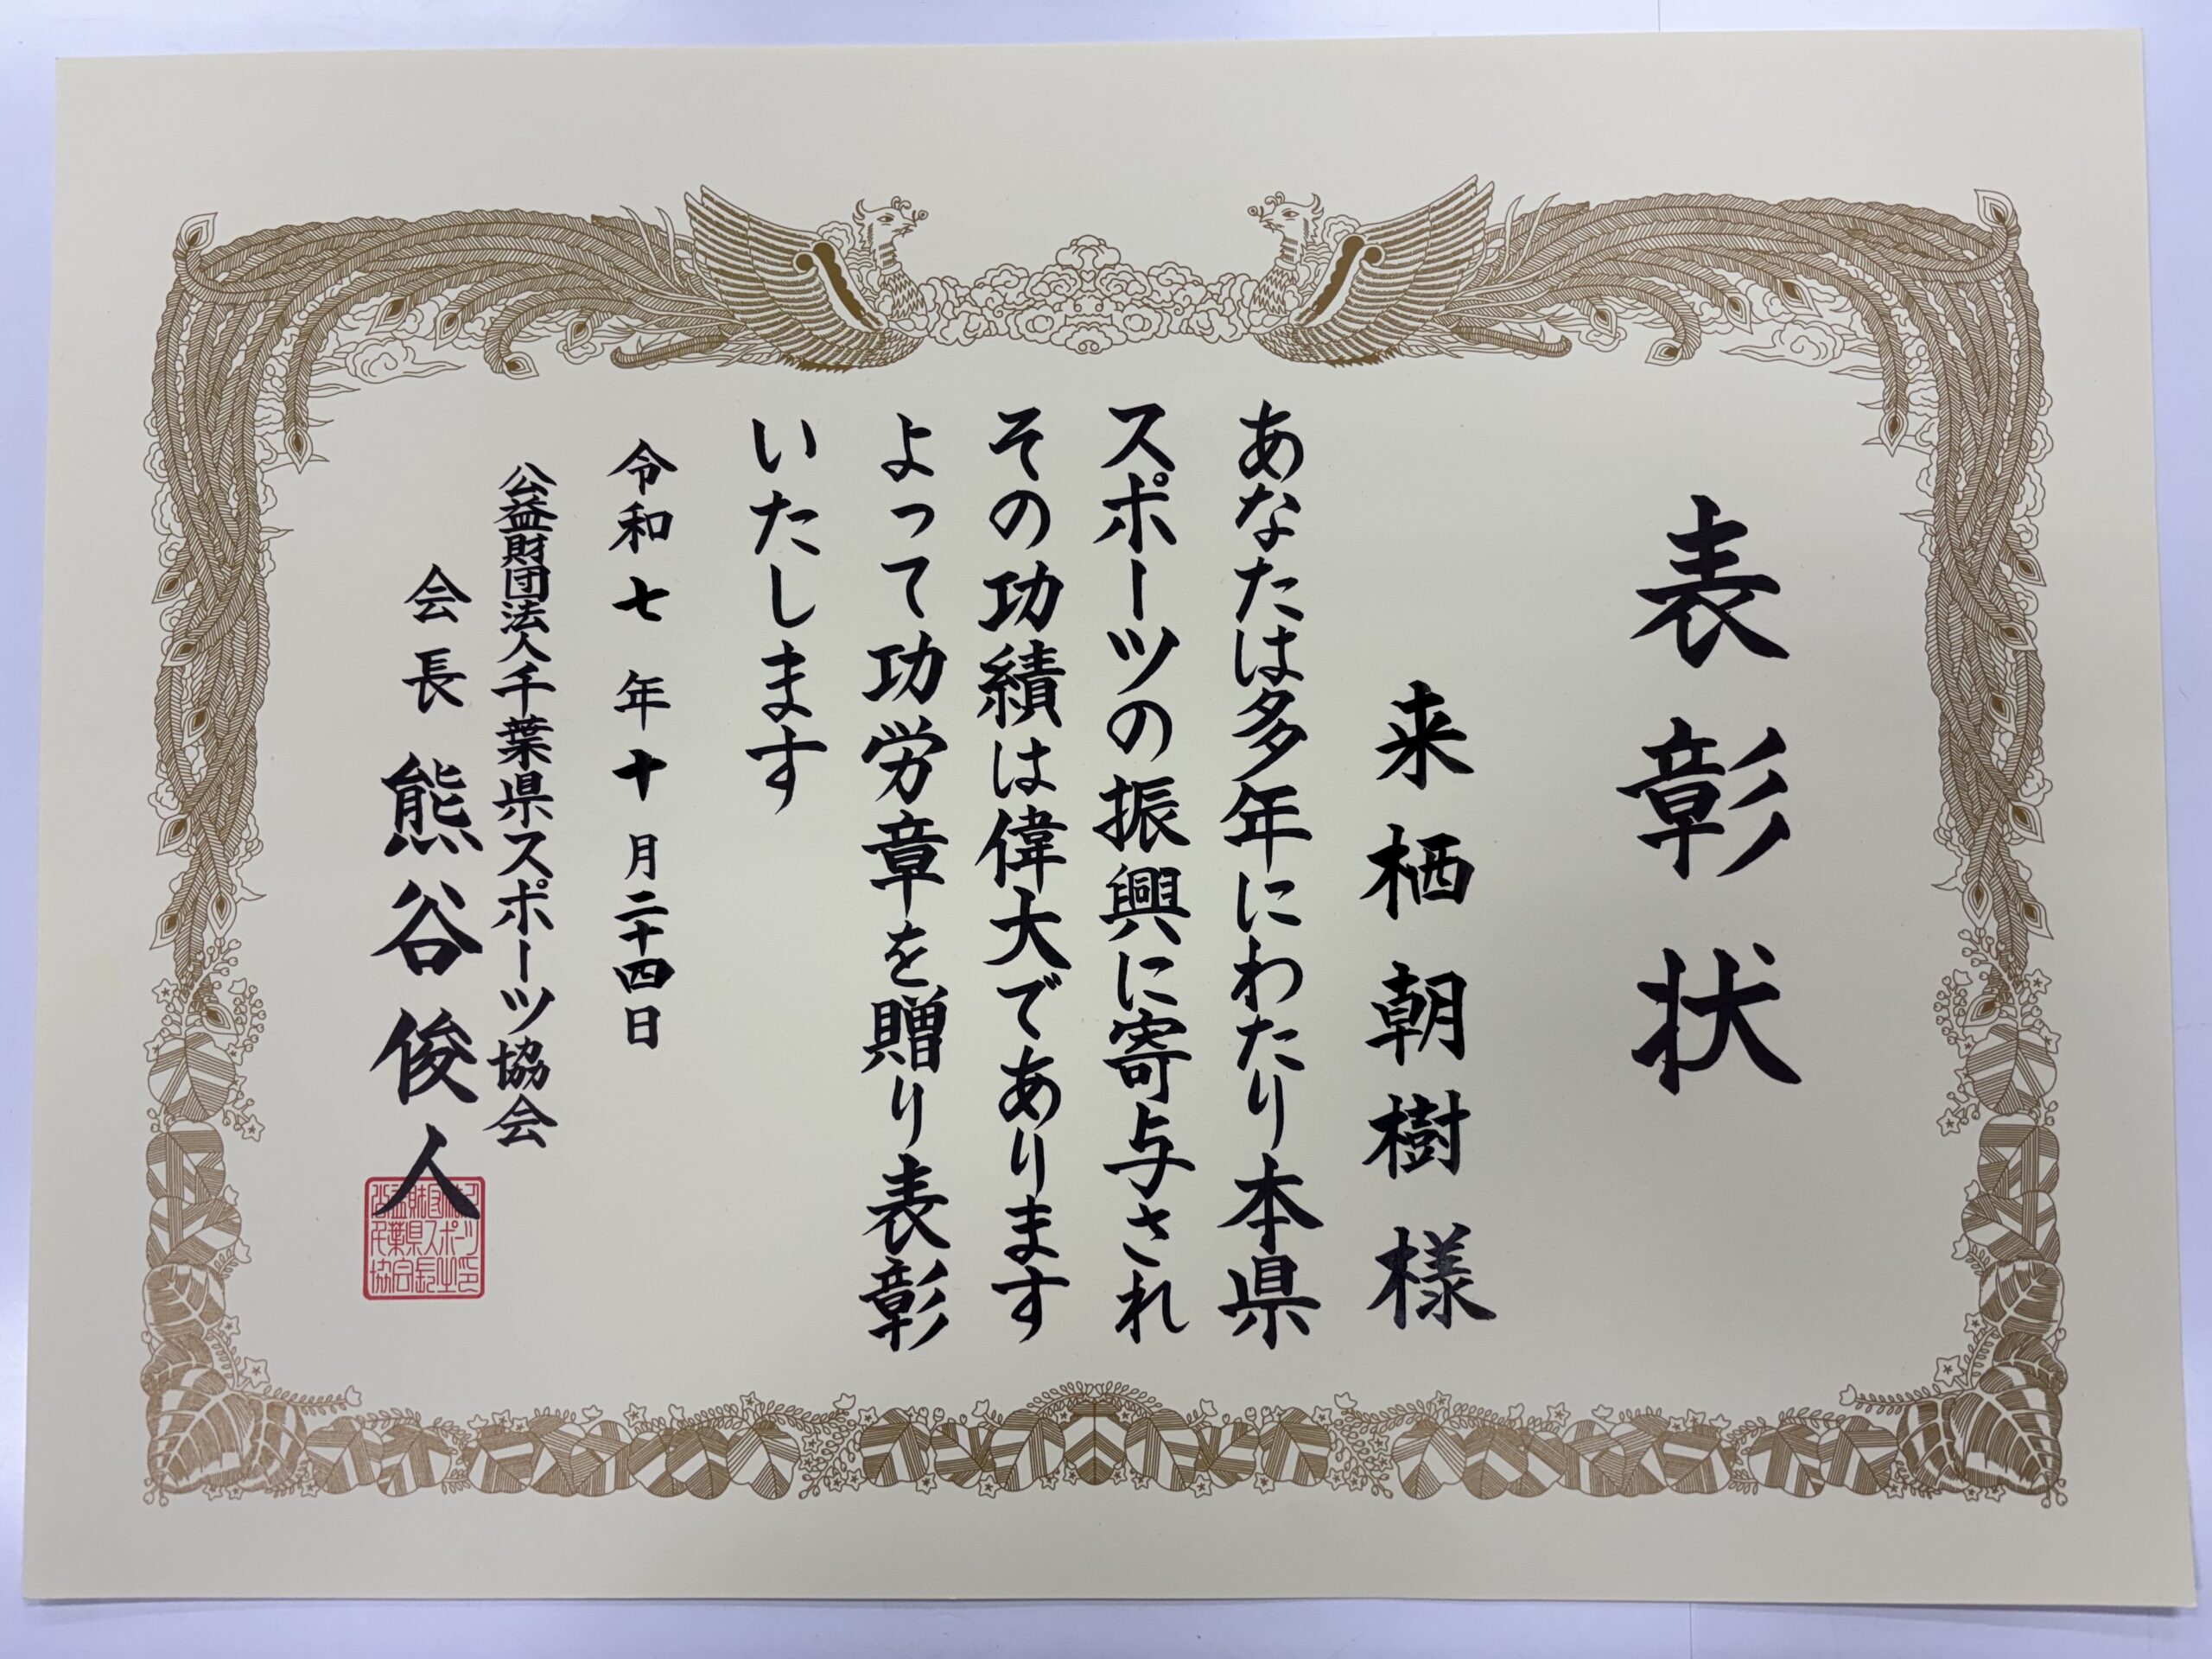 表彰状
来栖朝樹様
あなたは多年にわたり本県
スポーツの振興に寄与され
その功績は偉大であります
よって功労章を贈り表彰
いたします
令和七年十月二十四日
公益財団法人千葉県スポーツ協会
会長 熊谷俊人
公益財団法人
千葉県スポーツ
協会長之印